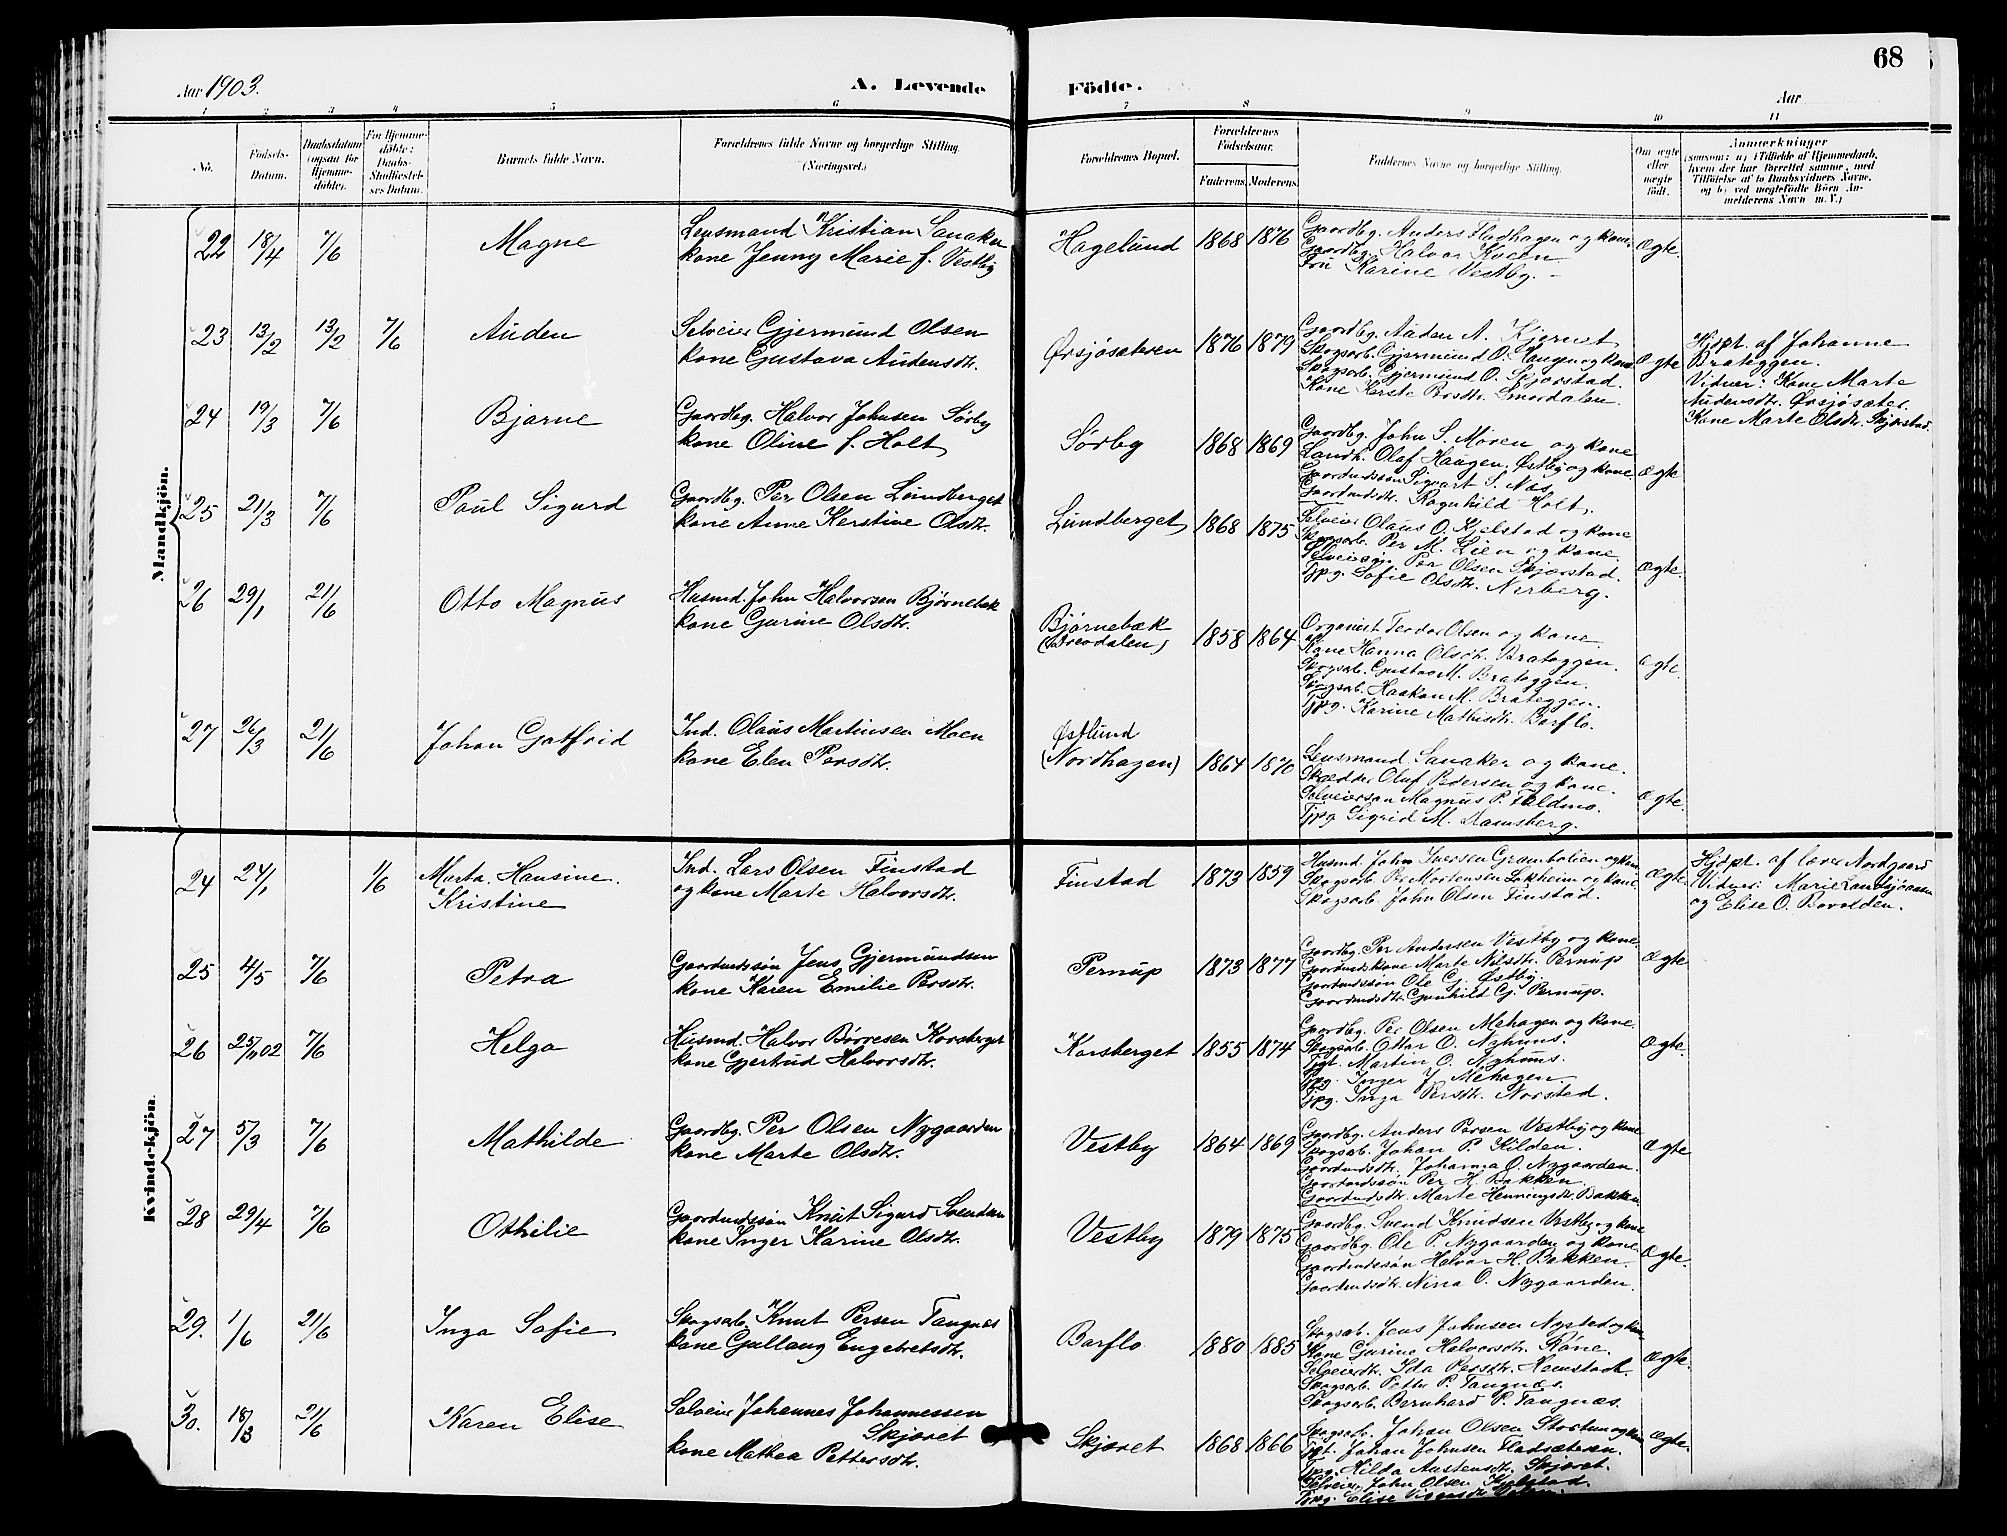 68
Aar 1903.
A. Levende Födte.
Aar
1 2 3 4 5 6 7 8 9 10 11
No.
Födsels-
Datum.
Daabsdatum
(ogsaa for
Hjemme-
döbte).
For Hjemme-
döbte:
Daabs-
Stadfæstel-
ses Datum.
Barnets fulde Navn.
Forældrenes fulde Navne og borgerlige Stilling
(Næringsvei.)
Forældrenes Bopæl.
Forældrenes
Fødselsaar.
Faderens. Moderens.
Faddernes Navne og borgerlige Stilling.
Om ægte
eller
uægte
født.
Anmærkninger
(saasom: a) i Tilfælde af Hjemmedaab,
hvem der har forrettet samme, med
Tilføielse af to Daabsvidners Navne,
og b) ved uægtefødte Börn An-
melderens Navn m. V.)
Mandkjön.
22 18/4 7/6 Magne
Lensmand Kristian Sanaker
kone Jenny Marie f. Vestby
Hagelund 1868 1876
Gaardbg. Anders Fladhagen og kone.
Gaardbg. Halvor Kveen
Fru Karine Vestby. –
Ægte.
23 13/2 13/2 7/6 Auden
Selveier Gjermund Olsen
kone Gustava Audensdtr.
Ørsjøsæteren 1876 1879
Gaardbg. Auden A. Kjernet
Skogsarb. Gjermund O. Haugen og kone
Skogsarb. Gjermund O. Skjærstad.
Kone Kerste Smordalen
Ægte
Hjdpt. af Johanne
Brateggen.
Vidner: Kone Marte
Audensdtr. Ørsjøsæter.
Kone Marte Olsdtr. Skjærstad.
24 19/3 7/6 Bjarne
Gaardbg. Halvor Johnsen Sørby
kone Oline f. Holt
Sørby 1868 1869
Gaardbg. John S. Moren og kone
Landh. Olaf Haugen, Østby og kone
Gaardmdssøn Sigvart S. Næs
Gaardmdsdtr. Ragnhild Holt.
Ægte
25 21/3 7/6 Paul Sigurd
Gaardbg. Per Olsen Lundberget
kone Anne Kerstine Olsdtr.
Lundberget 1868 1875
Selveier Olaus O. Kjelstad og kone
Skogsarb. Per M. Lien og kone
Selveiersøn Per Olsen Skjærstad.
Tjpg. Sofie Olsdtr. Nerberg.
Ægte.
26 29/1 21/6 Otto Magnus
Husmd. John Halvorsen Bjørnebæk
kone Gurine Olsdtr.
Bjørnebæk
1858 1864
Organist Teodor Olsen og kone
Kone Hanna Olsdtr. Brateggen.
Skogsarb. Gustav M. Brateggen.
Skogsarb. Haakon M. Brateggen.
Tjpg. Karine Mathisdtr. Barflo.
Ægte
27 26/3 21/6 Johan Gotfrid
Ind. Olaus Martinsen Moen
kone Elen Persdtr.
Østlund
(Nordhagen) 1864 1870
Lensmand Sanaker og kone.
Skrædder Oluf Pedersen og kone.
Selveiersøn Magnus P. Feldmo.
Tjpg. Sigrid M. Damsberg.
Ægte.
Kvindekjön.
24 24/1 1/6 Marta Hansine
Kristine
Ind. Lars Olsen Finstad
og kone Marte Halvorsdtr.
Finstad 1873 1859
Husmd. John Iversen Grambolien og kone
Skogsarb. Per Mortensen Sokheim og kone
Skogsarb. John Olsen Finstad.
Ægte.
Hjdpt. af lærer Nordgaard
Vidner: Marie Landsjøaasen
og Elise O. Bovolden.
25 4/5 7/6 Petra
Gaardmdssøn Jens Gjermundsen
kone Karen Emilie Persdtr.
Pernup 1873 1877
Gaardbg. Per Andersen Vestby og kone
Gaardmdskone Marte Nilsdtr. Pernup
Gaardmdssøn Ole G. Østby.
Gaardmdsdtr. Gunhild Gj. Pernup.
Ægte
26 25/11 02 7/6 Helga
Husmd. Halvor Børresen Korsberget
kone Gjertrud Halvorsdtr.
Korsberget 1855 1874
Gaardbg. Per Olsen Mehagen og kone
Skogsarb. Ottar O. Nyhuus.
Tjgt. Martin O. Nyhuus.
Tjpg. Inger J. Mehagen
Tjpg. Inga Persdtr. Norstad.
Ægte.
27 5/3 7/6 Mathilde
Gaardbg. Per Olsen Nygaarden
kone Marte Olsdtr.
Vestby 1864 1869
Gaardbg. Anders Persen Vestby og kone
Skogsarb. Johan P. Kilden.
Gaardmdsdtr. Johanna O. Nygaarden.
Gaardmdssøn Per H. Bakken.
Gaardmdsdtr. Marte Henningsdtr. Bakken
Ægte
28 29/4 7/6 Othilie
Gaardmdssøn Knut Sigurd Svendsen
kone Inger Karine Olsdtr.
Vestby 1879 1875
Gaardbg. Svend Knudsen Vestby og kone
Gaardbg. Ole P. Nygaarden og kone
Gaardmdssøn Halvor H. Bakken
Gaardmdsdtr. Nina O. Nygaarden.
Ægte.
29. 1/6 21/6 Inga Sofie
Skogsarb. Knut Persen Tangnes
kone Gullaug Engebretsdtr.
Barflo 1880 1885
Skogsarb. Jens Johnsen Nysted og kone
Kone Gurine Halvorsdtr. Røne.
Selveierdtr. Ida Persdtr. Hemstad.
Skogsarb. Petter P. Tangnæs.
Skogsarb. Bernhard P. Tangnæs.
Ægte.
30. 18/3 21/6 Karen Elise
Selveier Johannes Johannessen
Skjæret
kone Mathea Pettersdtr.
Skjæret 1868 1866
Skogsarb. Johan Olsen Stortun og kone
Tjgt. Johan Johnsen Fladsæteren.
Tjpg. Hilda Austensdtr. Skjæret.
Selveier John Olsen Kjelstad.
Tjpg. Elise
Ægte.